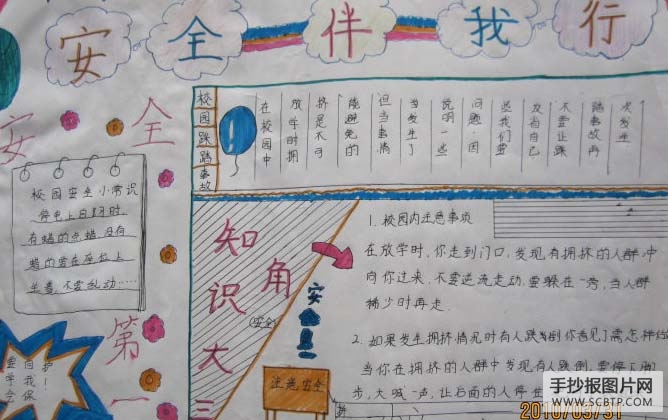 安全伴我行
安全第一
校园安全小常识
停电上自习时,
有蜡的点蜡没有
蜡的要在座位上
坐着,不要乱动……
要
学
会
自
我
保
护
!
校园踩踏事故
在校园中
放学时拥
挤是不可
能避免的
但当事情
当发生了
说明一些
问题.因
此我们要
及为自己
不要让踩
踏事故再
次发生
知识大三角
(安全)
安全
注意安全
1.校园内注意事项
在放学时,你走到门口,发现有拥挤的人群冲
向你过来,不要逆流走动,要躲在一旁,当人群
稀少时再走.
2.如果发生拥挤情况时有人跌倒你看见了需怎样
当你在拥挤的人群中发现有人跌倒,要停下脚
步,大喊一声,让后面的人停
手抄报图片网
WWW.SCBTP.COM